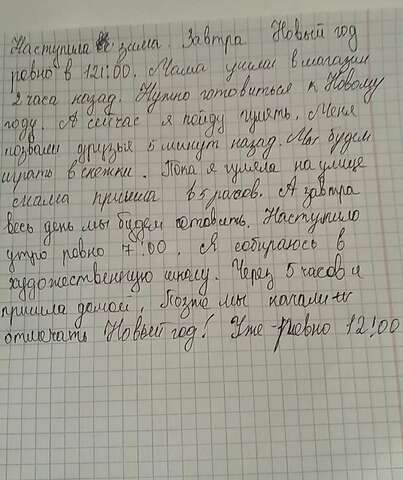 Наступила зима. Завтра Новый год
ровно в 12:00. Мама ушли в магазин
2 часа назад. Нужно готовиться к Новому
году. А сейчас я пойду гулять. Меня
позвали друзья 5 минут назад. Мы будем
играть в снежки. Пока я гуляла на улице
мама пришла в 5 часов. А завтра
весь день мы будем готовить. Наступило
утро ровно 7:00. Я собираюсь в
художественную школу. Через 5 часов я
пришла домой. Позже мы начали
отмечать Новый год! Уже ровно 12:00